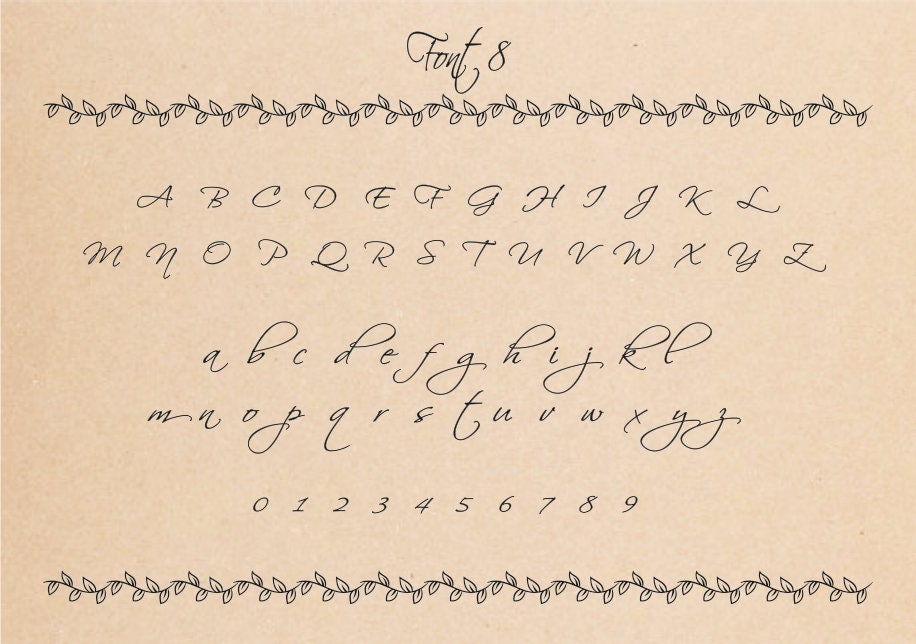 Font 8
A B C D E F G H I J K L
M N O P Q R S T U V W X Y Z
a b c d e f g h i j k l
m n o p q r s t u v w x y z
0 1 2 3 4 5 6 7 8 9